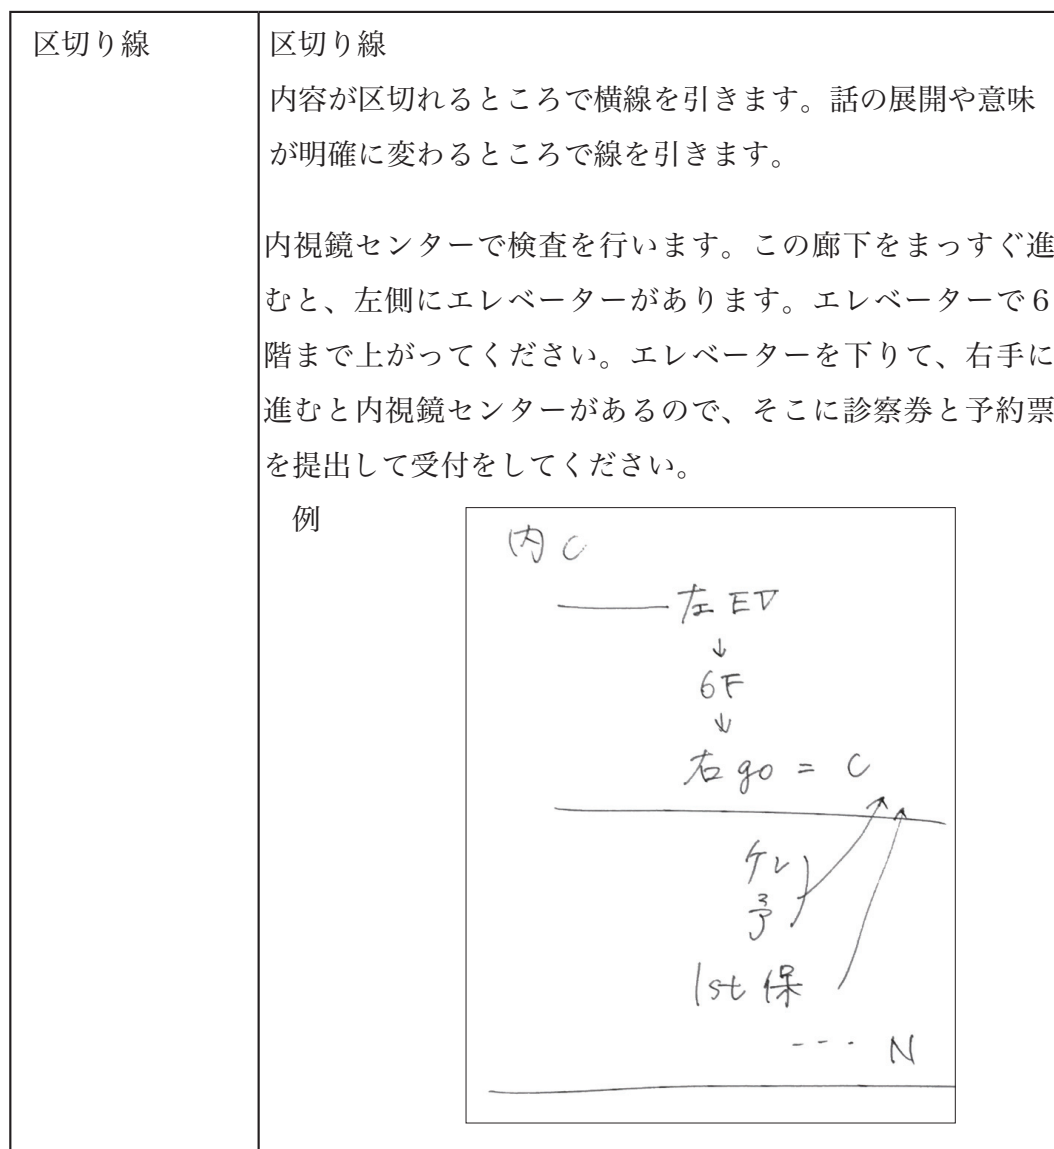 区切り線
区切り線
内容が区切れるところで横線を引きます。話の展開や意味
が明確に変わるところで線を引きます。
内視鏡センターで検査を行います。この廊下をまっすぐ進
むと、左側にエレベーターがあります。エレベーターで６
階まで上がってください。エレベーターを下りて、右手に
進むと内視鏡センターがあるので、そこに診察券と予約票
を提出して受付をしてください。
例
内 C
左 EV
↓
6F
↓
右 go = C
予
1st 保
--- N